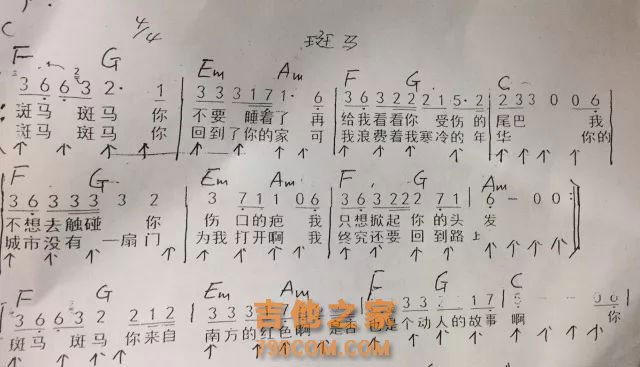 C 4/4 斑马
F G Em Am F G C
3 6 6 3 2· 1 3 3 3 1 7 1· 6 3 6 3 2 2 2 1 5· 2 2 3 3 0 0 6
斑马 斑马 你 不要 睡着了 再 给我看看你 受伤的 尾巴 我
斑马 斑马 你 回到了你的家 可 我浪费着我寒冷的年 华 你的
F G Em Am F G Am
3 6 3 3 3 3 2 3 7 1 1 0 6 3 6 3 2 2 2 2 7 1 6 - 0 0
不想去触碰 你 伤 口的疤 我 只想掀起 你 的头 发
城市没有 一扇门 为我 打开啊 我 终究还要 回 到路 上
F G Em Am F G C
3 6 6 3 2 2 1 2 3 3 3 3 3 1 7
斑马 斑马 你来自 南方的红色啊 是否 也是个动人的故事 啊 你
吉他之家
798COM.COM